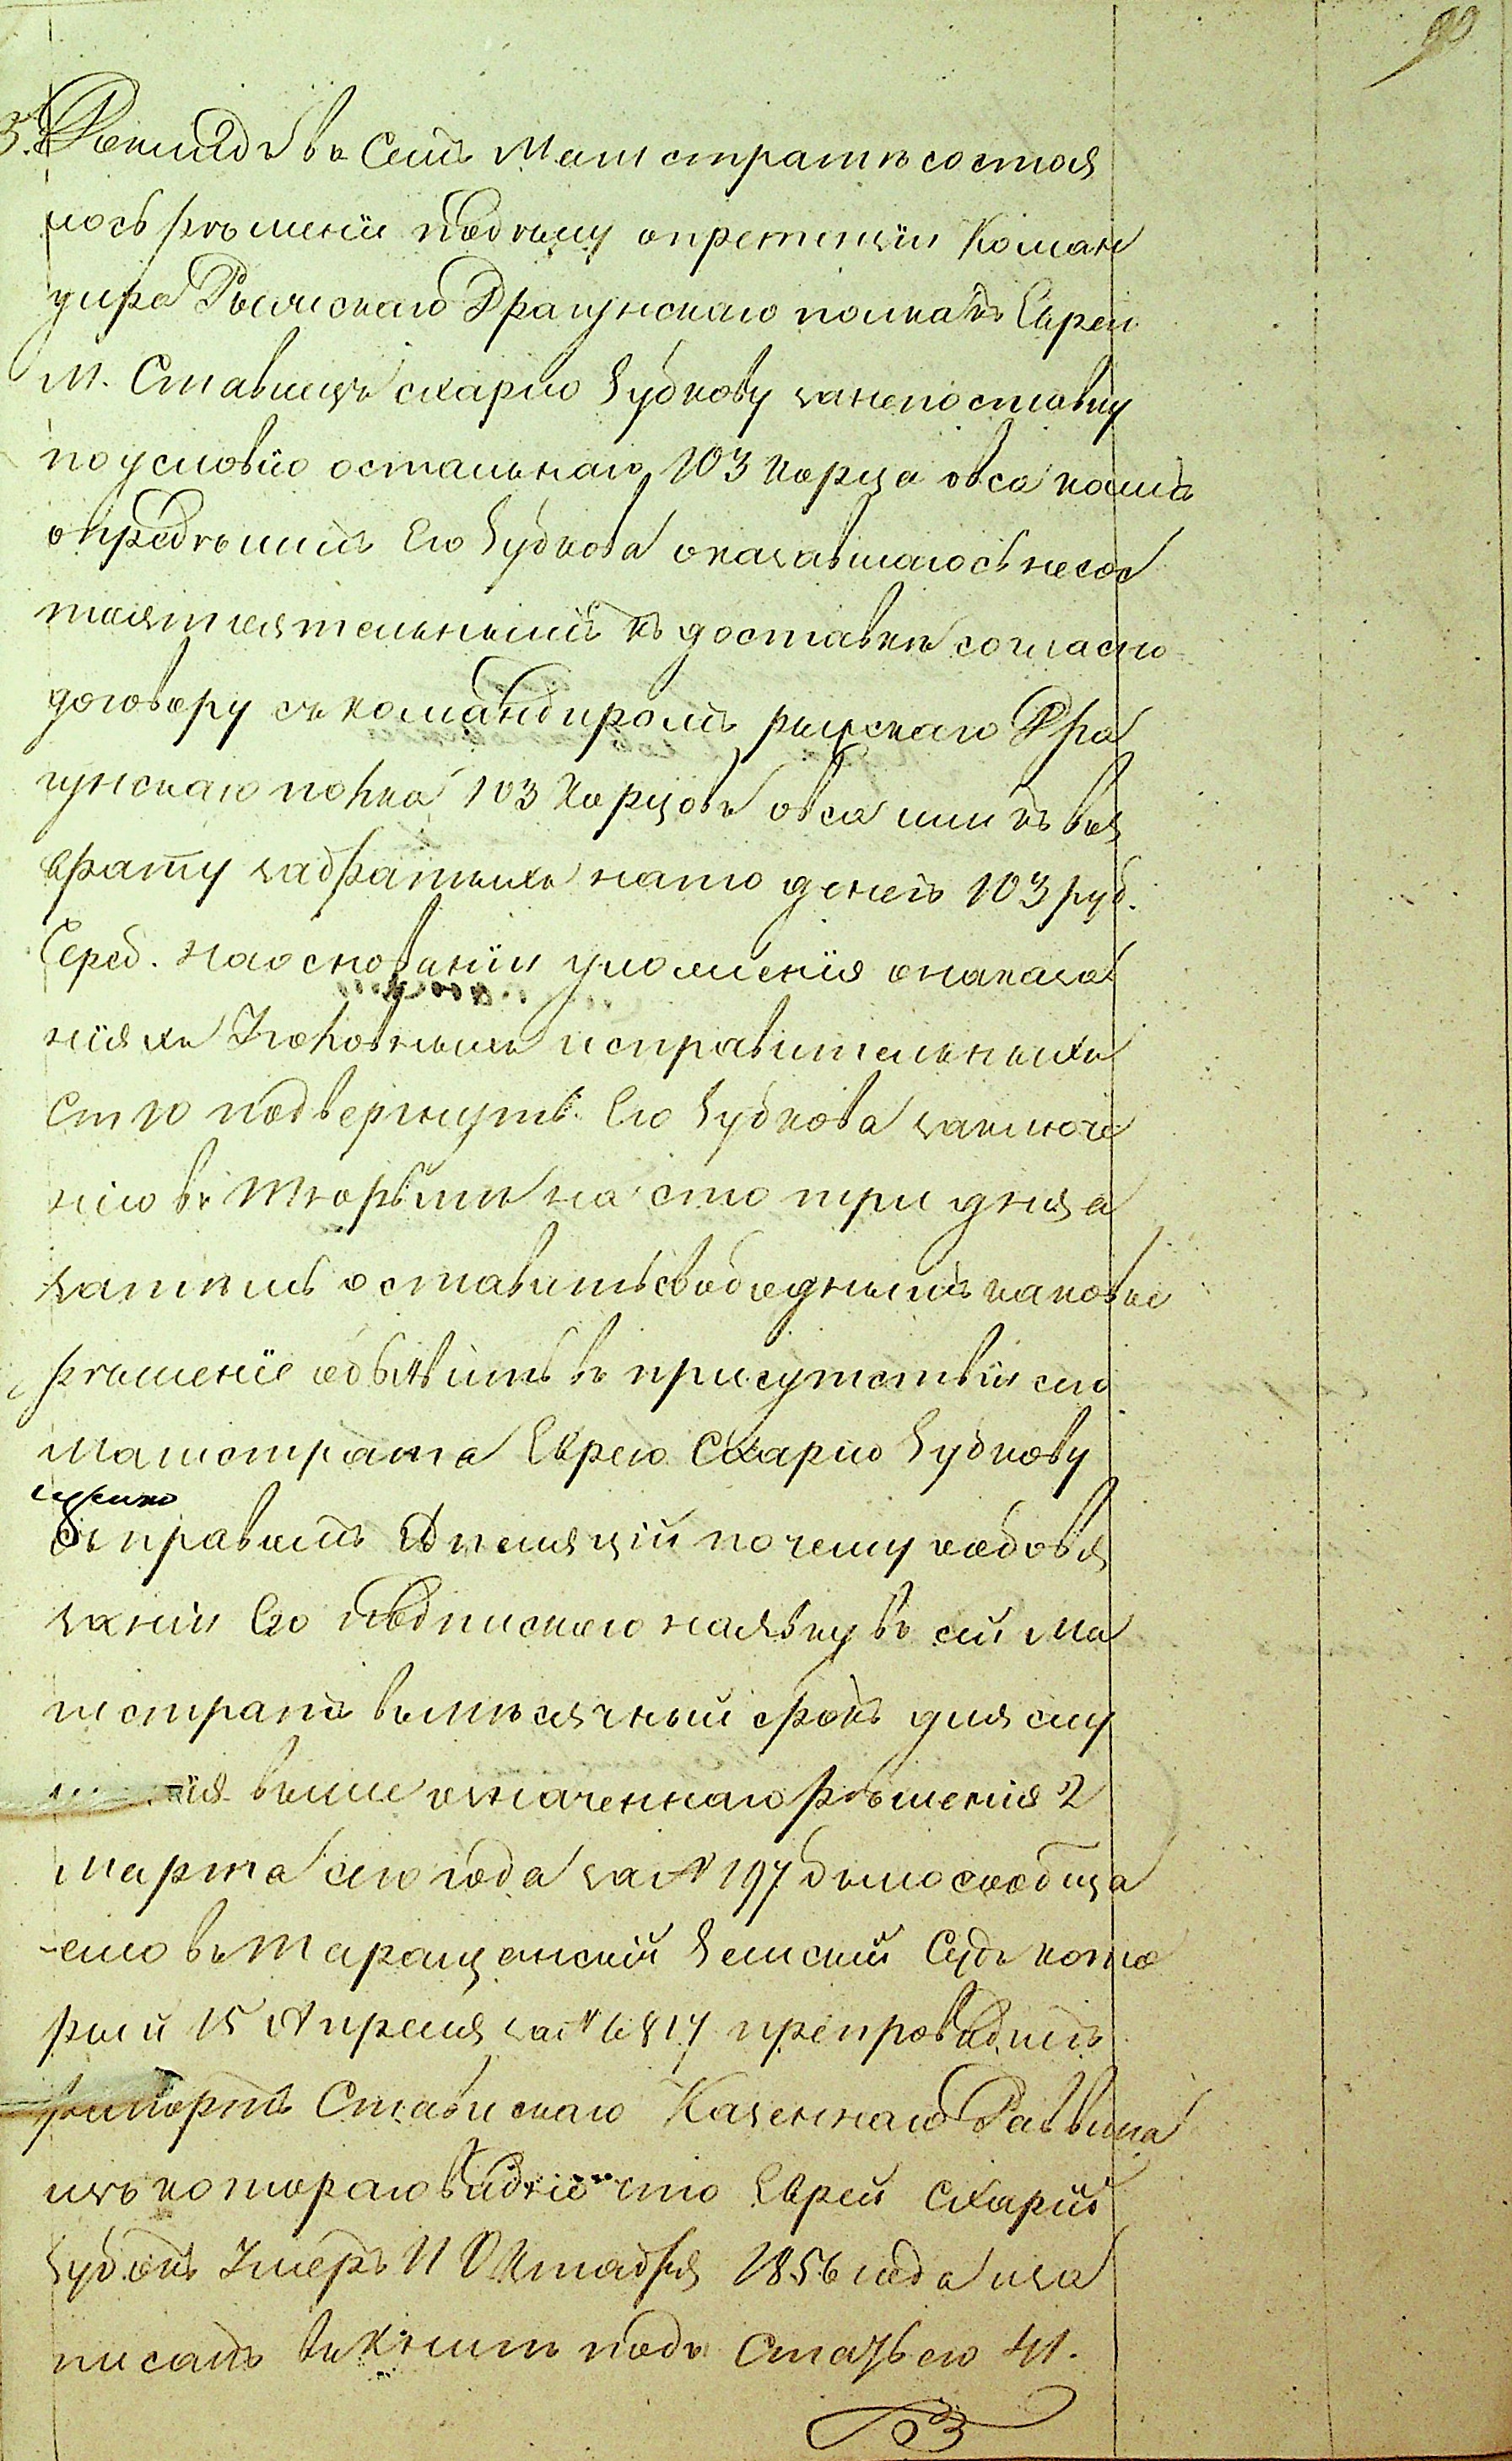 90
3. Января въ семъ Магистратѣ состоя
лось рѣшеніе по дѣлу о претензіи Коман
дира Рижскаго Драгунскаго полка къ Еврею
М. Ставищъ Схарію Зубкову за непоставку
по условію остальнаго 103 корца овса коимъ
опредѣлилъ Его Зубкова оказавшагось несос
тоятеятельнымъ къ доставкѣ согласно
договору съ командиромъ рижскаго Дра
гунскаго полка 103 Корцовъ овса или къ воз
врату забратыхъ на то денегъ 103 руб.
Сереб. на основаніи уложенія о наказа
ніяхъ Уголовныхъ исправительныхъ
ст 10 подвергнуть Его Зубкова заключе
нію въ тюрьмѣ на сто три дня а
затѣмъ оставить свободнымъ каковое
рѣшеніе объявить въ присутствіи сего
Магистрата Еврею Схарію Зубкову
съ правомъ Апеляціи почему о обовя
заніи Его подпискою на явку въ сей Ма
гистратъ въ мѣсячный срокъ для слу
нія выше означеннаго рѣшенія 2
Марта сего года за № 197 было сообща
емо въ Таращанскій Земскій Судъ кото
рый 15 Апреля за № 6817 препроводилъ
рапортъ Ставискаго Казеннаго Раввина
изъ котораго видно что Еврей Схарій
Зубокъ Умеръ 11 Октября 1856 года и за
писанъ въ Книгѣ подъ Статьею 41.